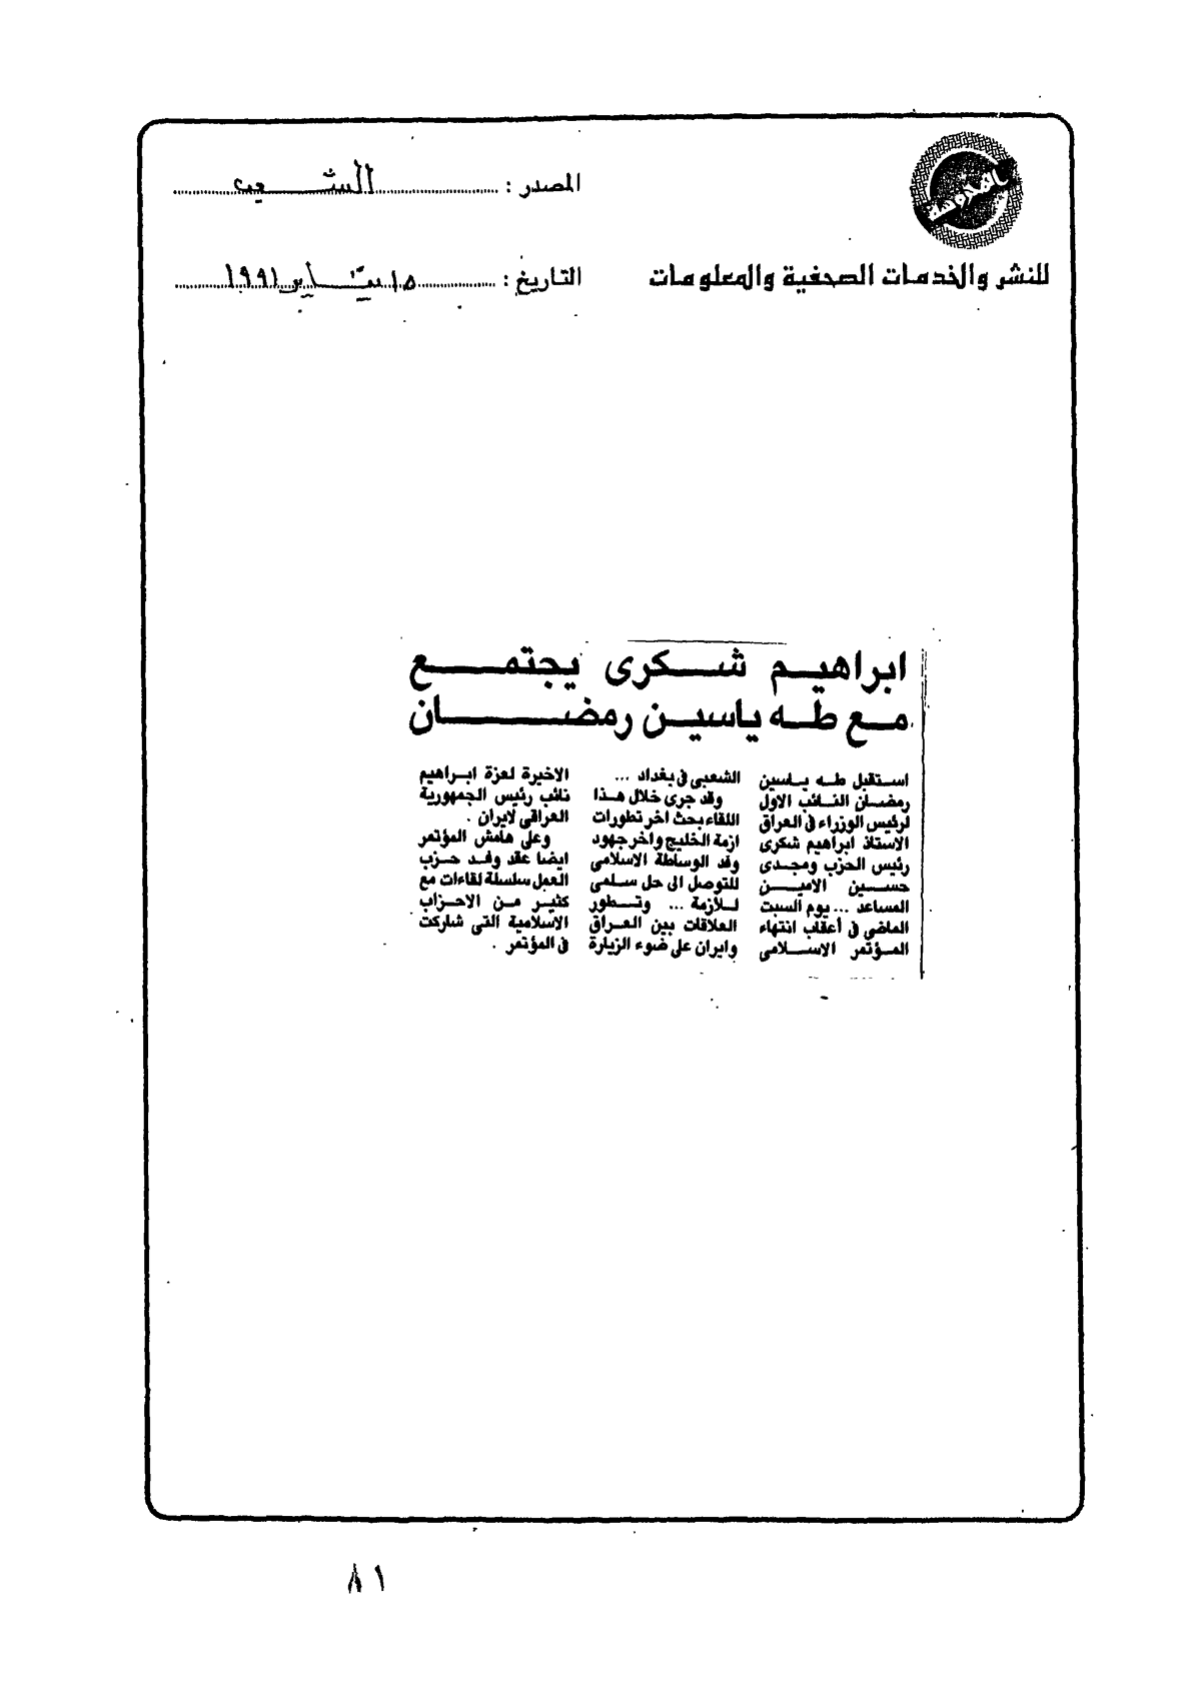 المصدر : الشعب
للنشر والخدمات الصحفية والمعلومات
التاريخ : ١٥ يناير ١٩٩١
ابراهيم شكرى يجتمع
مع طه ياسين رمضان
استقبل طه ياسين
رمضان النائب الاول
لرئيس الوزراء فى العراق
الاستاذ ابراهيم شكرى
رئيس الحزب ومجدى
حسين الامين
المساعد ... يوم السبت
الماضى فى أعقاب انتهاء
المؤتمر الاسلامى
الشعبى فى بغداد ...
وقد جرى خلال هذا
اللقاء بحث اخر تطورات
ازمة الخليج واخر جهود
وفد الوساطة الاسلامى
للتوصل الى حل سلمى
للازمة ... وتطور
العلاقات بين العراق
وايران على ضوء الزيارة
الاخيرة لعزة ابراهيم
نائب رئيس الجمهورية
العراقى لايران .
وعلى هامش المؤتمر
ايضا عقد وفد حزب
العمل سلسلة لقاءات مع
كثير من الاحزاب
الاسلامية التى شاركت
فى المؤتمر .
٨١